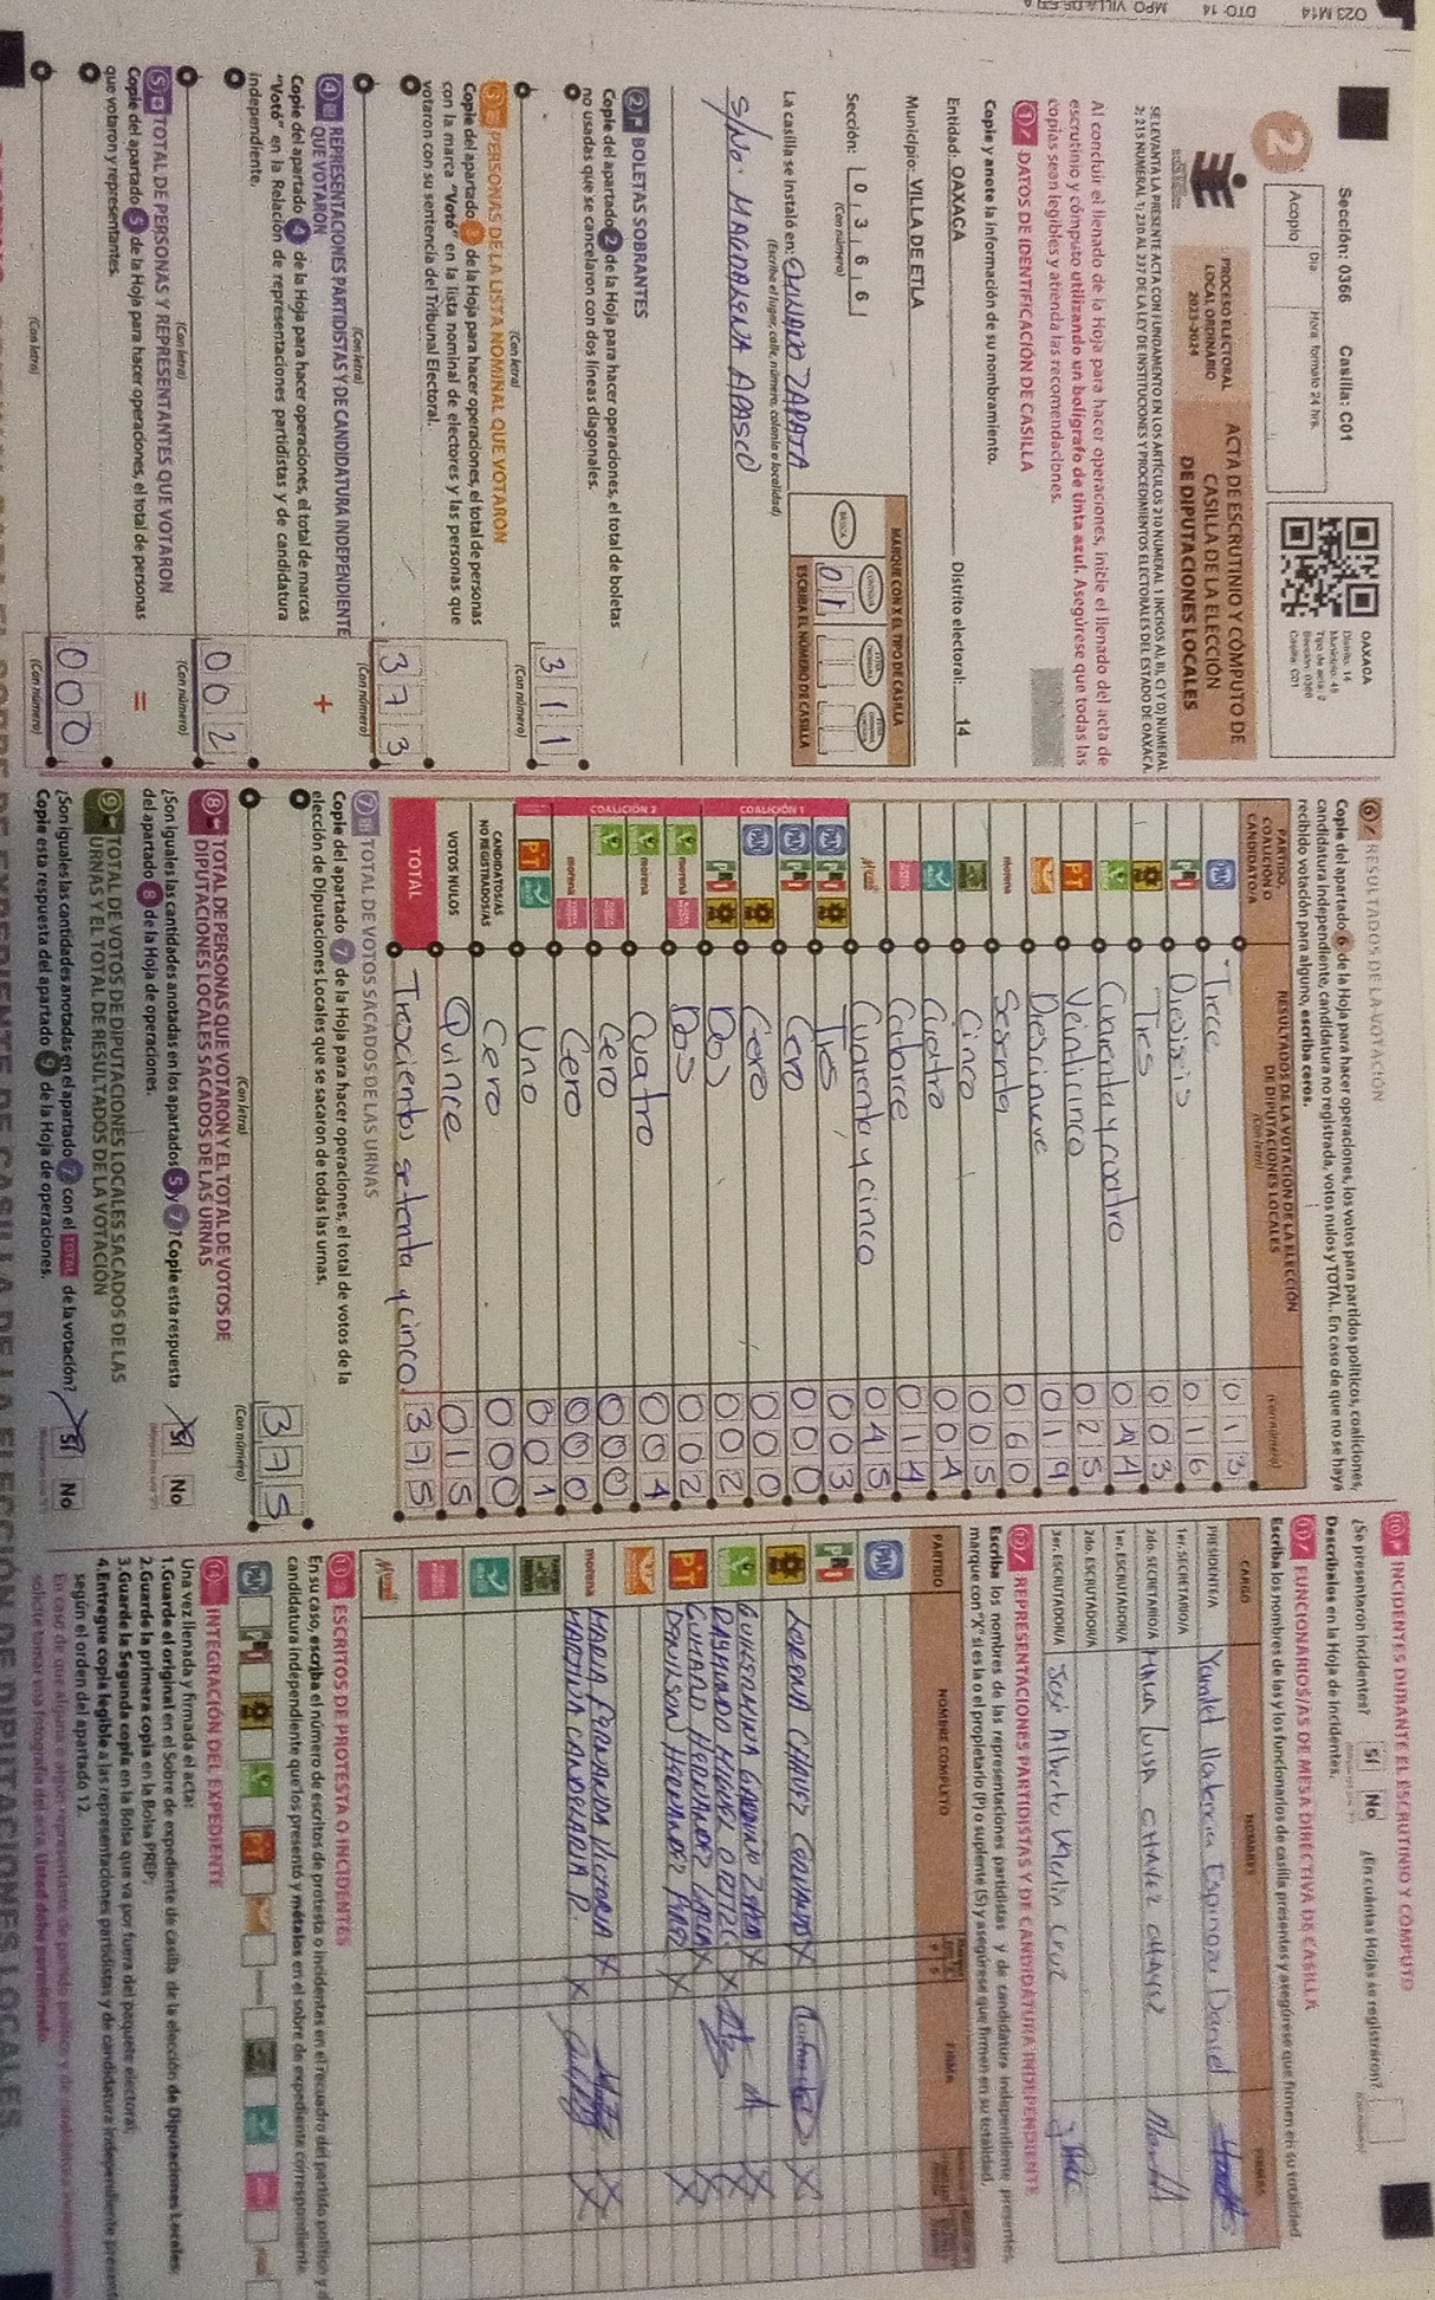 O23 M14 DTO 14 MPO VILLA DE ETLA
Sección: 0366 Casilla: C01
2
Acopio
Día
Hora formato 24 hrs.
OAXACA
Distrito: 14
Municipio: 45
Tipo de acta: 2
Sección: 0366
Casilla: C01
PROCESO ELECTORAL
LOCAL ORDINARIO
2023-2024
ACTA DE ESCRUTINIO Y CÓMPUTO DE
CASILLA DE LA ELECCIÓN
DE DIPUTACIONES LOCALES
SE LEVANTA LA PRESENTE ACTA CON FUNDAMENTO EN LOS ARTÍCULOS 210 NUMERAL 1 INCISOS A), B), C) Y D) NUMERAL
2; 215 NUMERAL 1; 230 AL 237 DE LA LEY DE INSTITUCIONES Y PROCEDIMIENTOS ELECTORALES DEL ESTADO DE OAXACA.
Al concluir el llenado de la Hoja para hacer operaciones, inicie el llenado del acta de
escrutinio y cómputo utilizando un bolígrafo de tinta azul. Asegúrese que todas las
copias sean legibles y atienda las recomendaciones.
1 DATOS DE IDENTIFICACIÓN DE CASILLA
Copie y anote la información de su nombramiento.
Entidad: OAXACA Distrito electoral: 14
Municipio: VILLA DE ETLA
Sección: 0 3 6 6
(Con número)
MARQUE CON X EL TIPO DE CASILLA
BÁSICA
CONTIGUA
01
ESCRIBA EL NÚMERO DE CASILLA
La casilla se instaló en: EMILIANO ZAPATA
(Escriba el lugar, calle, número, colonia o localidad)
S/No. MAGDALENA APASCO
2 BOLETAS SOBRANTES
Copie del apartado 2 de la Hoja para hacer operaciones, el total de boletas
no usadas que se cancelaron con dos líneas diagonales.
311
(Con letra) (Con número)
3 PERSONAS DE LA LISTA NOMINAL QUE VOTARON
Copie del apartado 3 de la Hoja para hacer operaciones, el total de personas
con la marca "Votó" en la lista nominal de electores y las personas que
votaron con su sentencia del Tribunal Electoral.
373
(Con letra) (Con número)
4 REPRESENTACIONES PARTIDISTAS Y DE CANDIDATURA INDEPENDIENTE
QUE VOTARON
+
Copie del apartado 4 de la Hoja para hacer operaciones, el total de marcas
"Votó" en la Relación de representaciones partidistas y de candidatura
independiente.
002
(Con letra) (Con número)
5 TOTAL DE PERSONAS Y REPRESENTANTES QUE VOTARON
=
Copie del apartado 5 de la Hoja para hacer operaciones, el total de personas
que votaron y representantes.
000
(Con letra) (Con número)
6 RESULTADOS DE LA VOTACIÓN
Copie del apartado 6 de la Hoja para hacer operaciones, los votos para partidos políticos, coaliciones,
candidatura independiente, candidatura no registrada, votos nulos y TOTAL. En caso de que no se haya
recibido votación para alguno, escriba ceros.
PARTIDO,
COALICIÓN O
CANDIDATO/A
RESULTADOS DE LA VOTACIÓN DE LA ELECCIÓN
DE DIPUTACIONES LOCALES
(Con letra)
(Con número)
PAN Trece 013
PRI Diesiseis 016
Tres 003
Cuarenta y cuatro 044
PT Veinticinco 025
Diescinueve 019
morena Sesenta 060
Cinco 005
Cuatro 004
Catorce 014
Cuarenta y cinco 045
COALICIÓN 1
PAN PRI Tres 003
PAN PRI Cero 000
PAN Cero 000
PRI Dos 002
COALICIÓN 2
morena Dos 002
morena Cuatro 004
Cero 000
morena Cero 000
PT Uno 001
CANDIDATOS/AS
NO REGISTRADOS/AS Cero 000
VOTOS NULOS Quince 015
TOTAL Trescientos setenta y cinco 375
7 TOTAL DE VOTOS SACADOS DE LAS URNAS
Copie del apartado 7 de la Hoja para hacer operaciones, el total de votos de la
elección de Diputaciones Locales que se sacaron de todas las urnas.
375
(Con letra) (Con número)
8 TOTAL DE PERSONAS QUE VOTARON Y EL TOTAL DE VOTOS DE
DIPUTACIONES LOCALES SACADOS DE LAS URNAS
¿Son iguales las cantidades anotadas en los apartados 5 y 7? Copie esta respuesta
del apartado 8 de la Hoja de operaciones.
Sí No
9 TOTAL DE VOTOS DE DIPUTACIONES LOCALES SACADOS DE LAS
URNAS Y EL TOTAL DE RESULTADOS DE LA VOTACIÓN
¿Son iguales las cantidades anotadas en el apartado 7 con el TOTAL de la votación?
Copie esta respuesta del apartado 9 de la Hoja de operaciones.
Sí No
10 INCIDENTES DURANTE EL ESCRUTINIO Y CÓMPUTO
¿Se presentaron incidentes? Sí No ¿En cuántas Hojas se registraron?
Descríbalos en la Hoja de Incidentes.
11 FUNCIONARIOS/AS DE MESA DIRECTIVA DE CASILLA
Escriba los nombres de las y los funcionarios de casilla presentes y asegúrese que firmen en su totalidad.
CARGO NOMBRES FIRMAS
PRESIDENTE/A Yamilet Espinoza Daniel
1er. SECRETARIO/A
2do. SECRETARIO/A LUISA CHAVEZ CHAVEZ
1er. ESCRUTADOR/A
2do. ESCRUTADOR/A
3er. ESCRUTADOR/A José Alberto Cruz
12 REPRESENTACIONES PARTIDISTAS Y DE CANDIDATURA INDEPENDIENTE
Escriba los nombres de las representaciones partidistas y de candidatura independiente presentes,
marque con "X" si es la o el propietario (P) o suplente (S) y asegúrese que firmen en su totalidad.
PARTIDO NOMBRE COMPLETO P S FIRMA
PAN
PRI LORENA CHAVEZ X X
X X
RAYMUNDO MIGUEL ORTIZ X X
PT HERNANDEZ X X
DENILSON HERNANDEZ X X
morena MARIA FERNANDA VICTORIA X X
MARTINA CANDELARIA P. X X
13 ESCRITOS DE PROTESTA O INCIDENTES
En su caso, escriba el número de escritos de protesta o incidentes en el recuadro del partido político y
candidatura independiente que los presentó y métalos en el sobre de expediente correspondiente.
14 INTEGRACIÓN DEL EXPEDIENTE
Una vez llenada y firmada el acta:
1.Guarde el original en el Sobre de expediente de casilla de la elección de Diputaciones Locales;
2.Guarde la primera copia en la Bolsa PREP;
3.Guarde la Segunda copia en la Bolsa que va por fuera del paquete electoral;
4.Entregue copia legible a las representaciones partidistas y de candidatura independiente
según el orden del apartado 12.
En caso de que alguna o algún representante de partido político y de candidatura
solicite tomar una fotografía del acta, Usted debe permitirlo